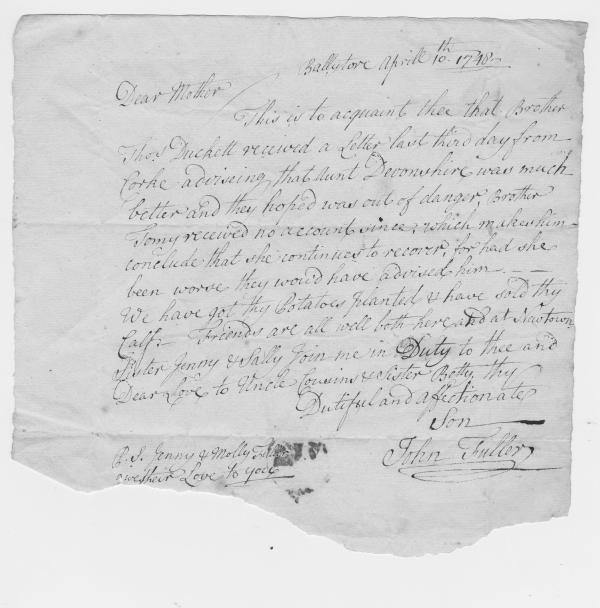 Ballytore Aprill 10th 1748
Dear Mother
This is to acquaint thee that Brother
Thos Duckett received a Letter last third day from
Corke adviseing that Aunt Devonshire was much
better and they hoped was out of danger, Brother
Tomy received no account since, which makes him
conclude that she continues to recover, for had she
been worse they would have advised him ——
We have got thy Potatoes planted & have sold thy
Calf: Friends are all well both here and at Newtown
Sister Jenny & Sally Join me in Duty to thee and
Dear Love to Uncle Cousins & Sister Betty, thy
Dutiful and affectionate
Son
John Fuller
P. S. Jenny & Molly
their Love to you